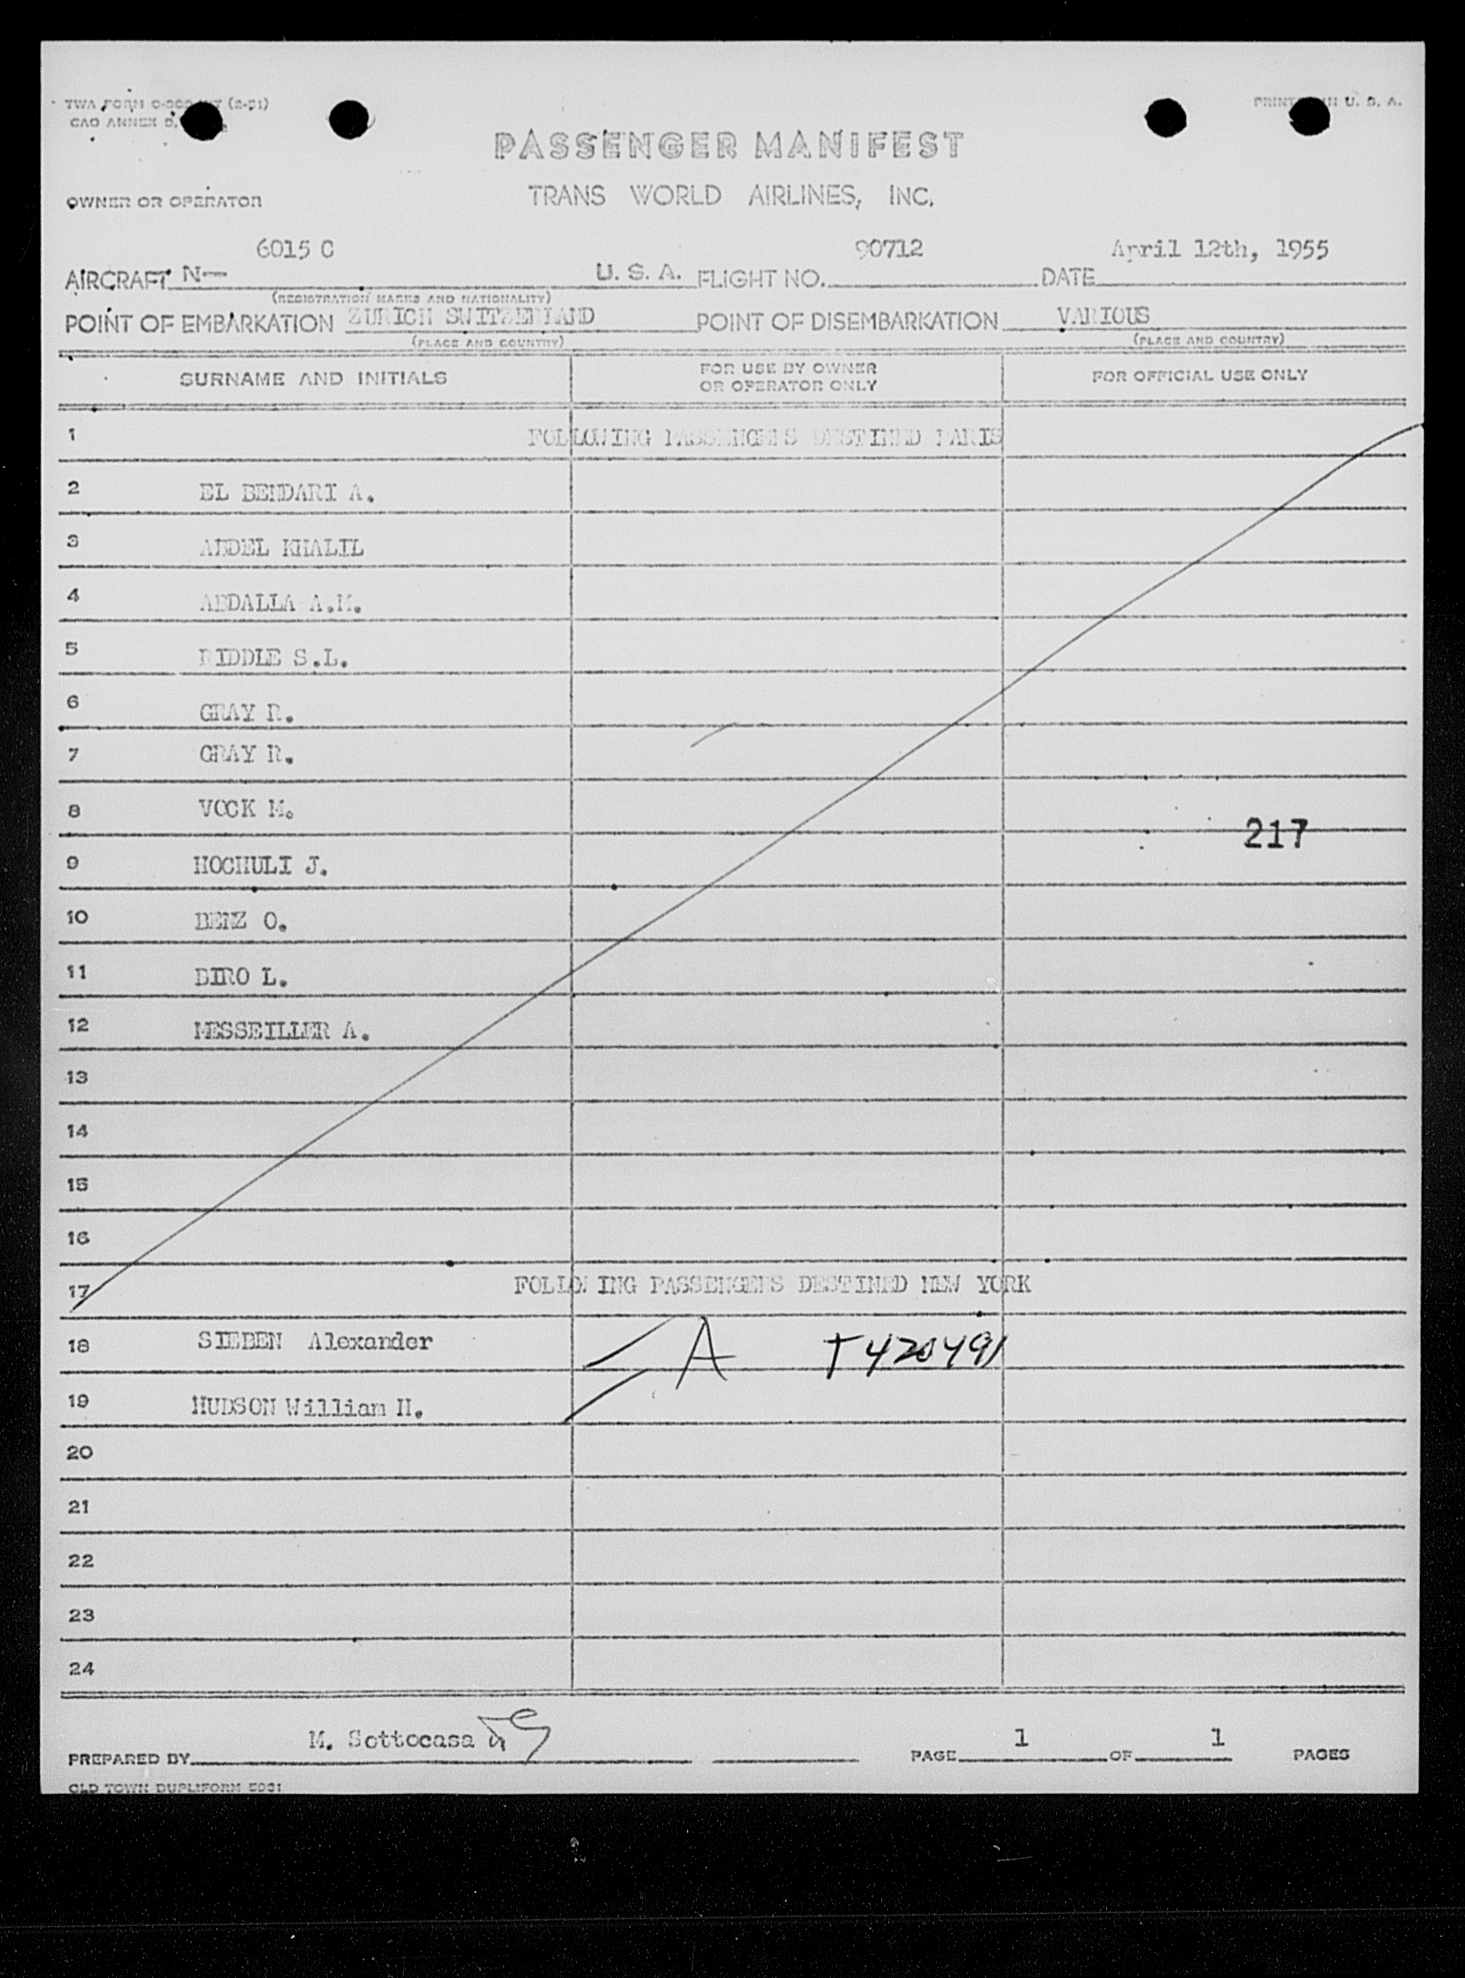 TWA FORM (2-51)
PRINTED IN U. S. A.
CAO ANNEX 9,
PASSENGER MANIFEST
OWNER OR OPERATOR
TRANS WORLD AIRLINES, INC.
6015 C 90712 April 12th, 1955
AIRCRAFT N— U. S. A. FLIGHT NO. DATE
(REGISTRATION MARKS AND NATIONALITY)
POINT OF EMBARKATION ZURICH SWITZERLAND POINT OF DISEMBARKATION VARIOUS
(PLACE AND COUNTRY) (PLACE AND COUNTRY)
SURNAME AND INITIALS
FOR USE BY OWNER
OR OPERATOR ONLY
FOR OFFICIAL USE ONLY
1 FOLLOWING PASSENGERS DESTINED PARIS
2 EL BENDARI A.
3 ABDEL KHALIL
4 ABDALLA A.M.
5 RIDDLE S.L.
6 GRAY R.
7 GRAY R.
8 VOCK M.
217
9 HOCHULI J.
10 BENZ O.
11 BIRO L.
12 MESSEILLER A.
13
14
15
16
17 FOLLOWING PASSENGERS DESTINED NEW YORK
18 SIEBEN Alexander A T420491
19 HUDSON William H.
20
21
22
23
24
M. Sottocasa 1 1
PREPARED BY PAGE OF PAGES
OLD TOWN DUPLIFORM